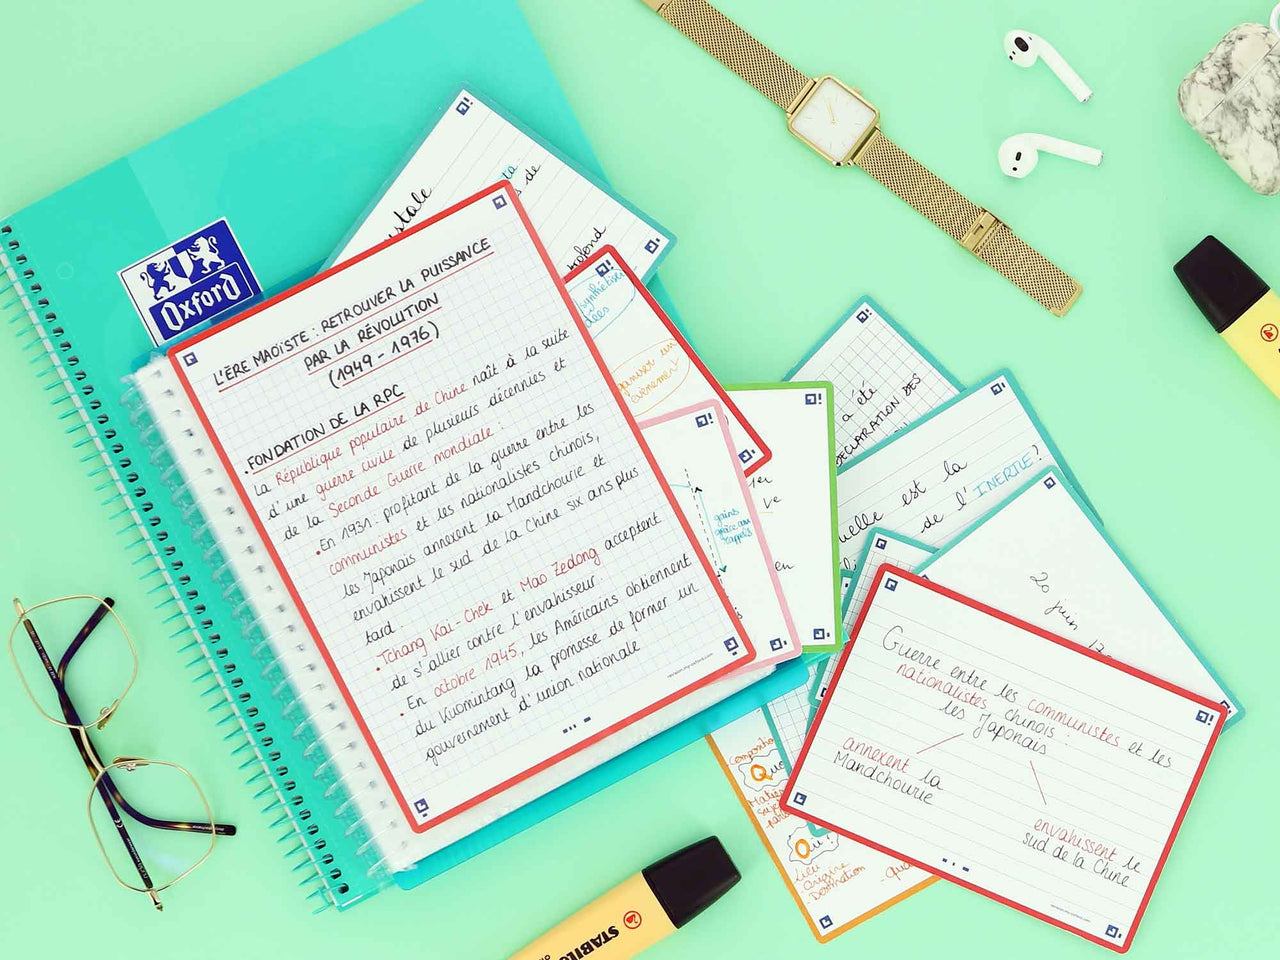 Oxford
L'ÈRE MAOÏSTE : RETROUVER LA PUISSANCE
PAR LA RÉVOLUTION
(1949 - 1976)
.FONDATION DE LA RPC
La République populaire de Chine naît à la suite
d'une guerre civile de plusieurs décennies et
de la Seconde Guerre mondiale :
• En 1931 : profitant de la guerre entre les
communistes et les nationalistes chinois,
les Japonais annexent la Mandchourie et
envahissent le sud de la Chine six ans plus
tard.
• Tchang Kaï-Chek et Mao Zedong acceptent
de s'allier contre l'envahisseur.
• En octobre 1945, les Américains obtiennent
du Kuomintang la promesse de former un
gouvernement d'union nationale
de
profond
synthétiser
évènement
gains
grâce aux
rappels
en
a été
DÉCLARATION DES
est la
de l'INERTIE ?
20
juin
Guerre entre les communistes et les
nationalistes chinois :
les Japonais
annexent la
Mandchourie
envahissent le
sud de la Chine
Qui ?
Lieu
Origine
- Destination
STABILO